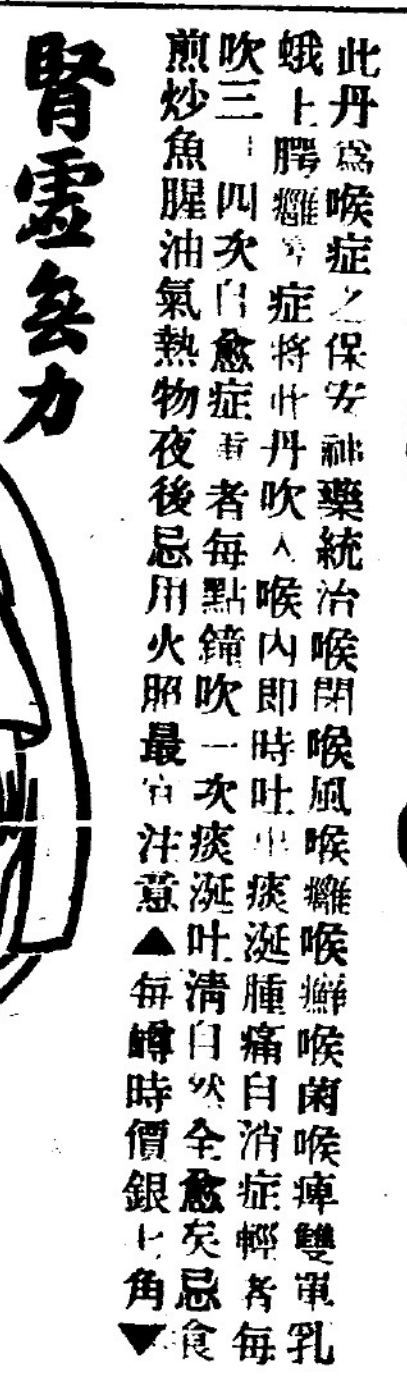 此丹爲喉症之保安神藥統治喉閉喉風喉癰喉癬喉菌喉痺雙單乳
蛾上腭癰等症將此丹吹入喉內即時吐出痰涎腫痛自消症輕者每
吹三四次自愈症重者每點鐘吹一次痰涎吐淸自然全愈矣忌食
煎炒魚腥油氣熱物夜後忌用火照最宜注意▲每罇時價銀七角▼
腎虛無力